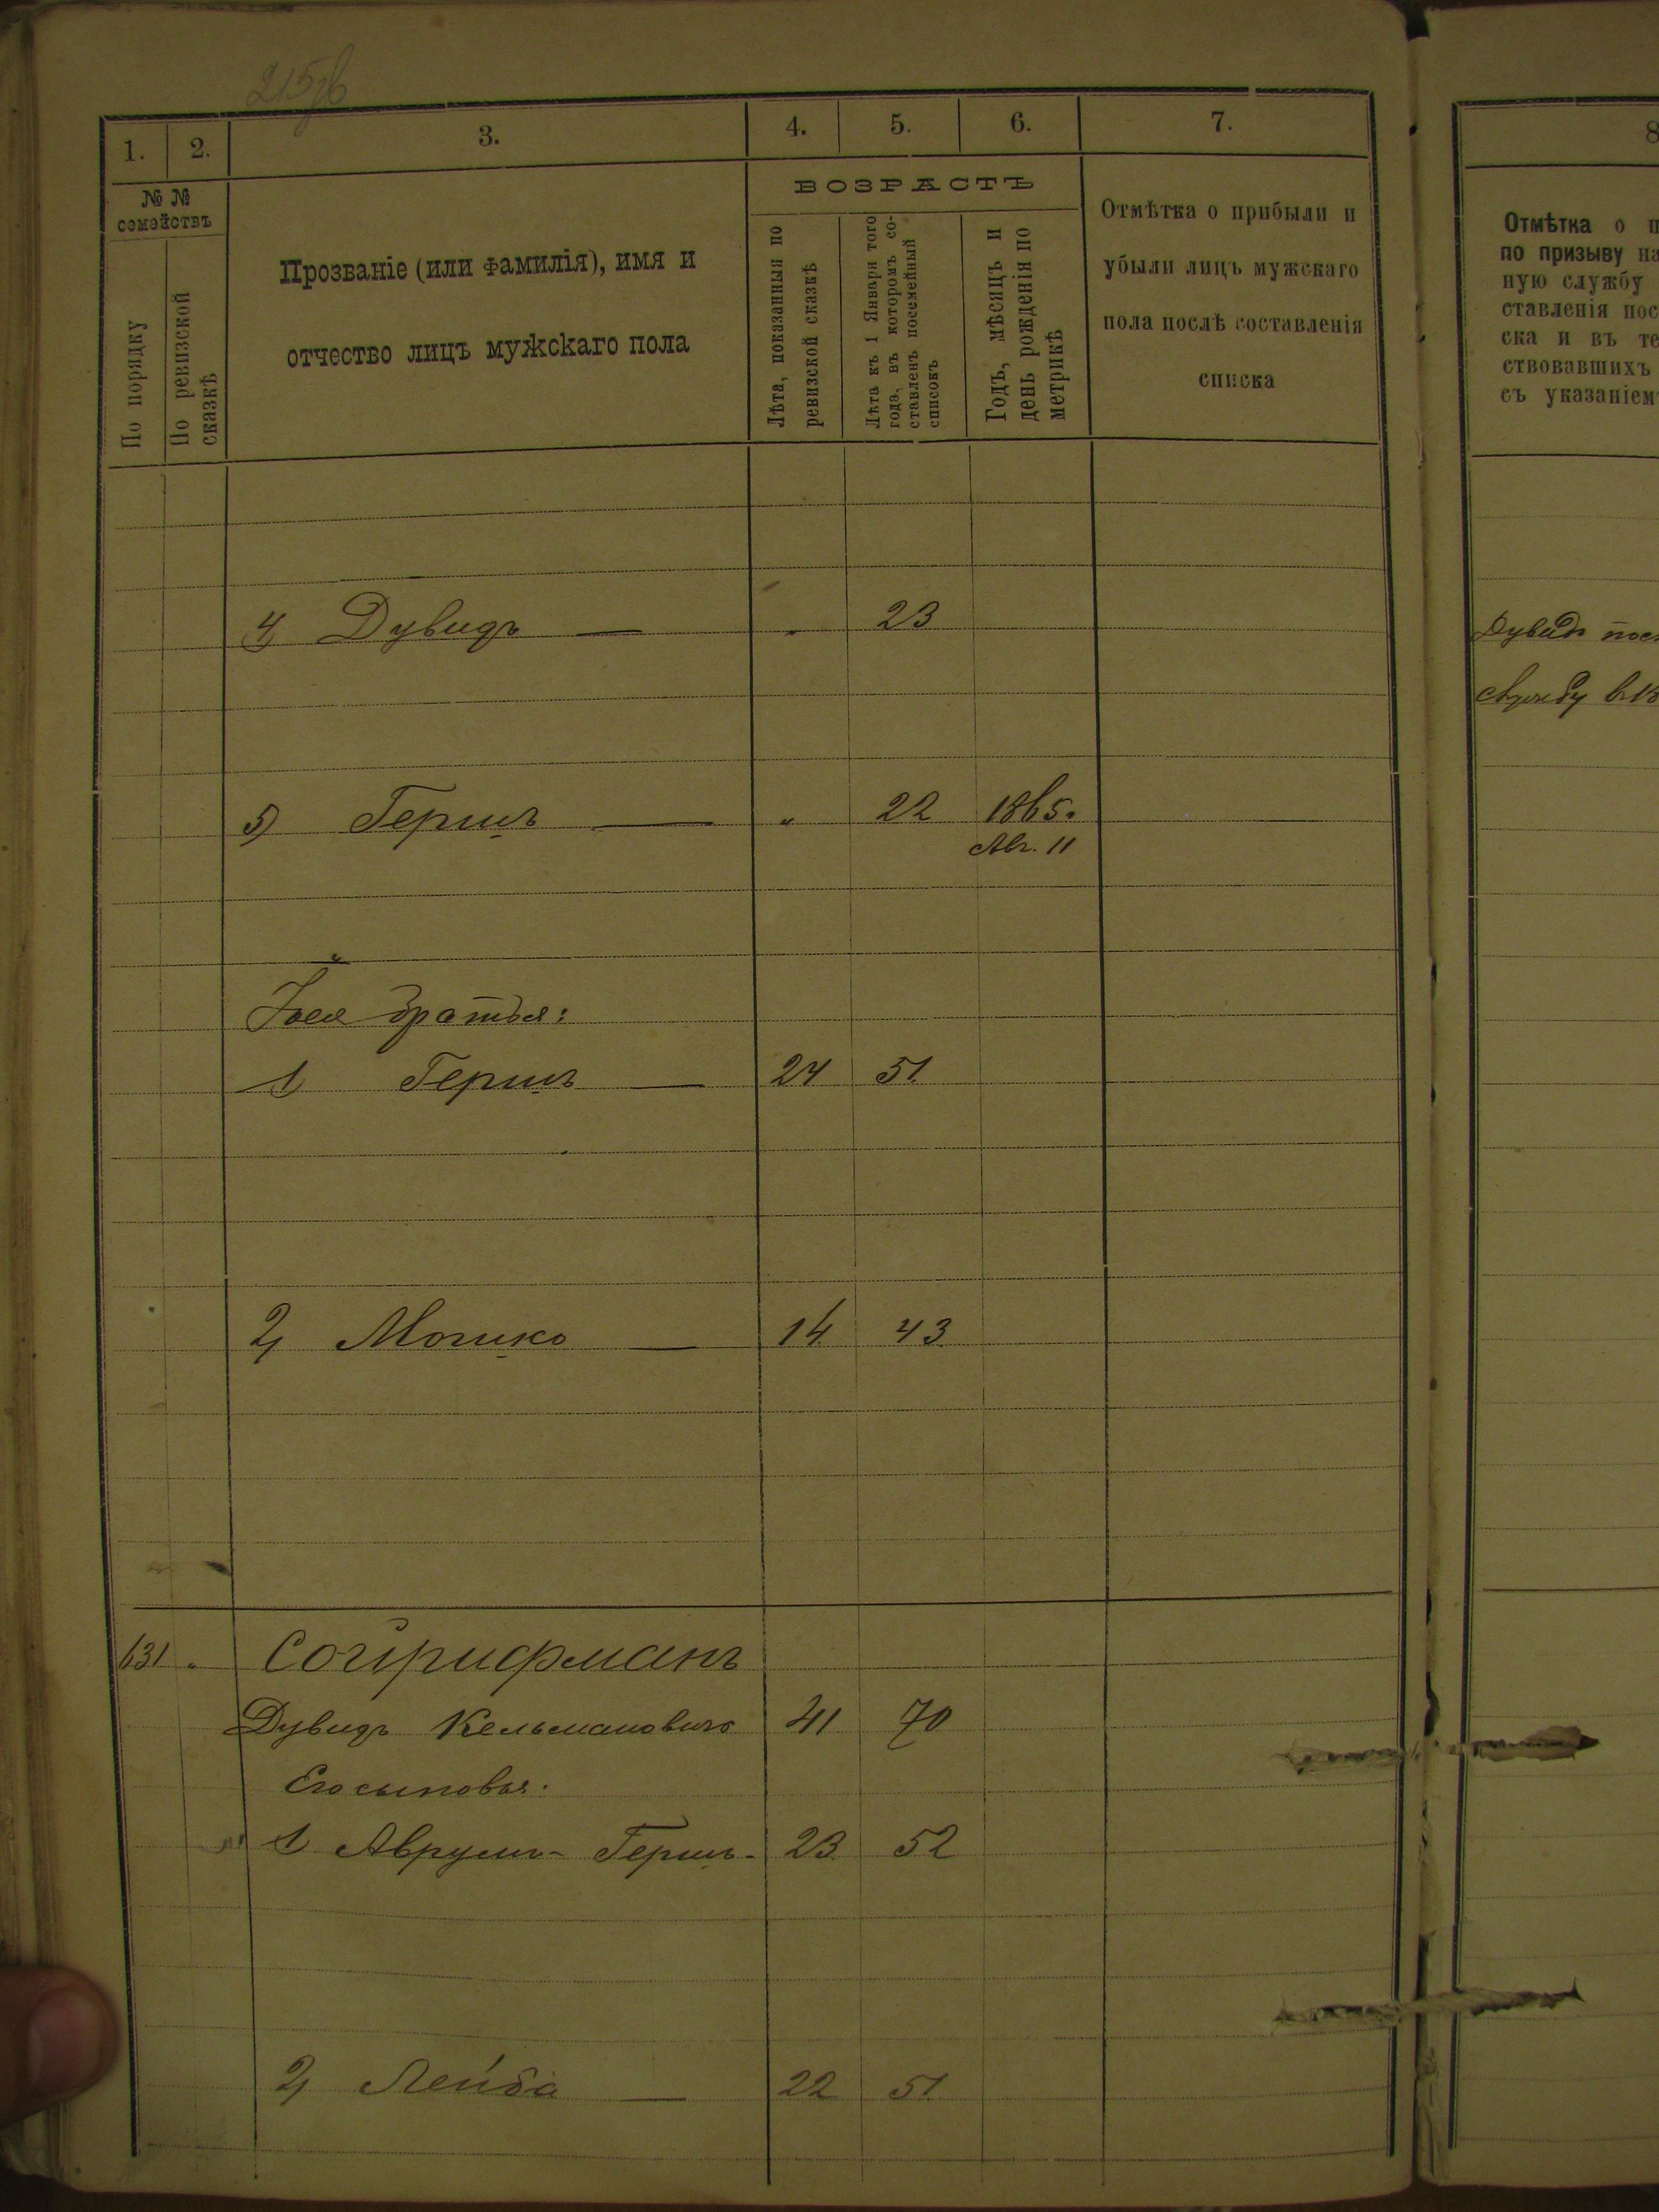 215об
1.
2.
3.
4.
5.
6.
7.
№ №
семействъ
По порядку
По ревизской
сказкѣ
Прозваніе (или фамилія), имя и
отчество лицъ мужскаго пола
ВОЗРАСТЪ
Лѣта, показанныя по
ревизской сказкѣ
Лѣта къ 1 Января того
года, въ которомъ со-
ставленъ посемейный
списокъ
Годъ, мѣсяцъ и
день рожденія по
метрикѣ
Отмѣтка о прибыли и
убыли лицъ мужскаго
пола послѣ составленія
списка
4) Дувидъ — „ 23
5) Гершъ — „ 22 1865.
Авг. 11
братья:
1 Гершъ — 24 51.
2) Мошко — 14. 43.
631 „
Дувидъ Кельмановичъ 41 70
Его сыновья:
1 Аврумъ-Гершъ- 23. 52
2) Лейба — 22 51.
8
Отмѣтка о п
по призыву на
ную службу
ставленія пос
ска и въ те
ствовавшихъ
съ указаніем
Дувидъ пос
службу в 18